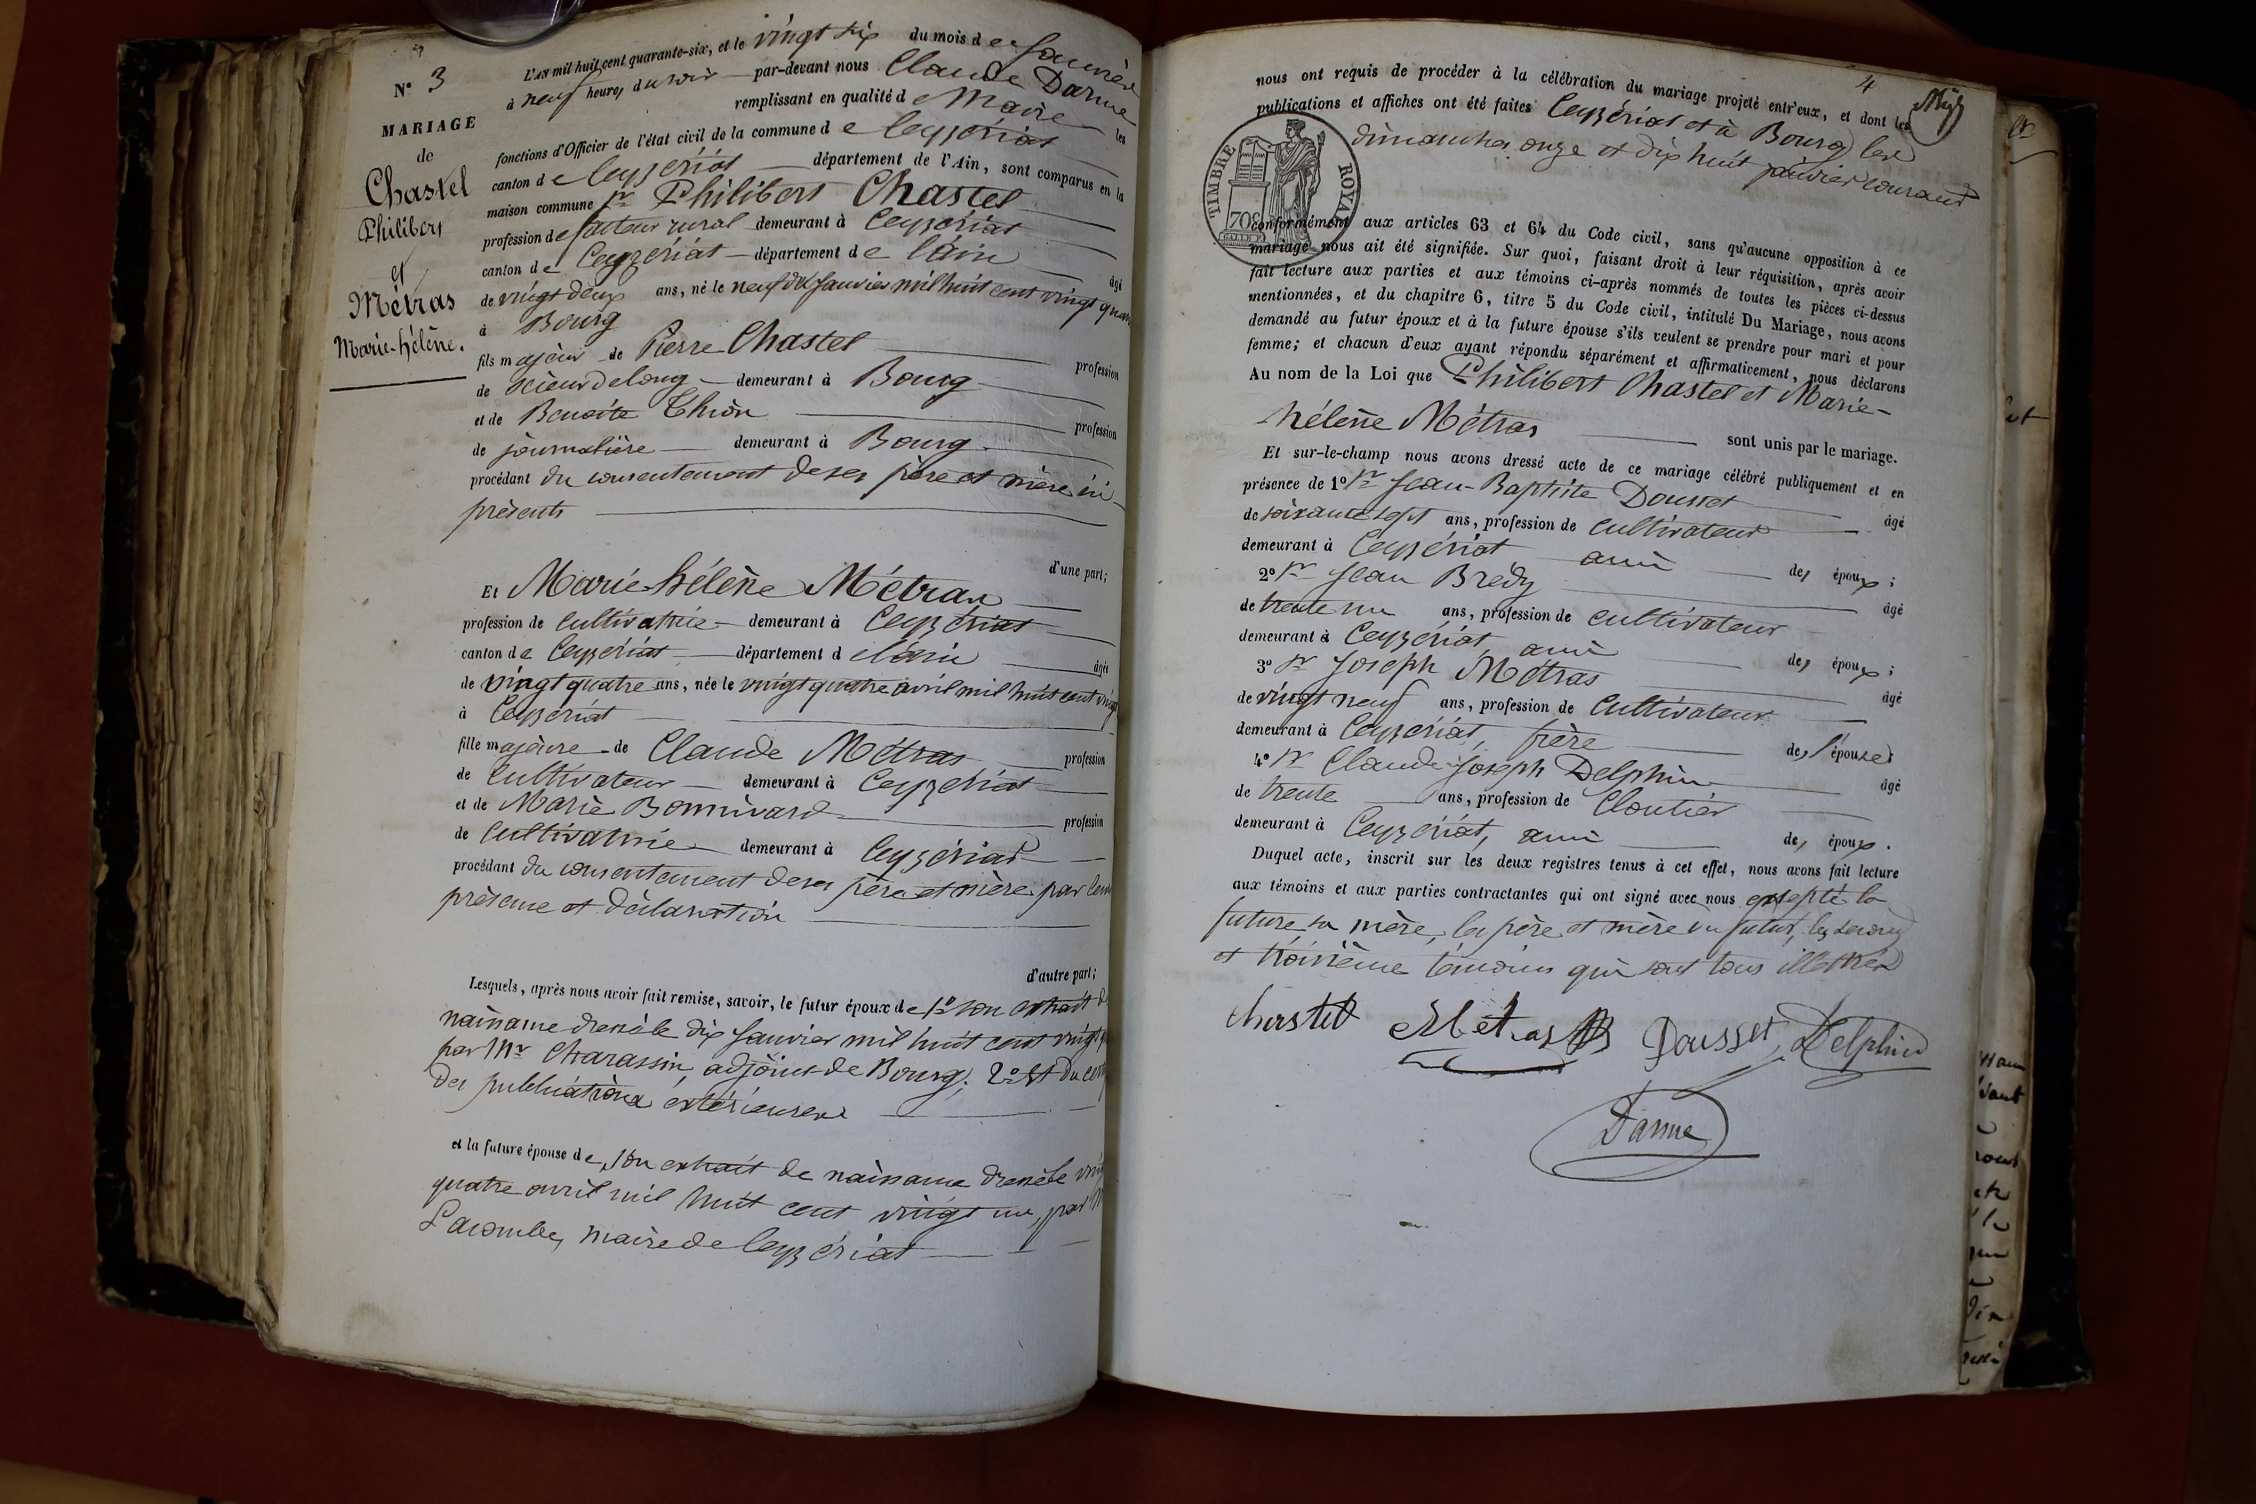 N° 3
MARIAGE
de
Chastel
Philibert
et
Métras
Marie-hélène.
L'AN mil huit cent quarante-six, et le vingt six du mois de Janvier
à neuf heures du soir par-devant nous Claude Darme
remplissant en qualité de Maire les
fonctions d'Officier de l'état civil de la commune de Ceyzériat
canton de Ceyzériat département de l'Ain, sont comparus en la
maison commune Sr Philibert Chastel
profession de facteur rural demeurant à Ceyzériat
canton de Ceyzériat département de l'ain âgé
de vingt deux ans, né le neuf du Janvier mil huit cent vingt quatre
à Bourg
fils majeur de Pierre Chastel profession
de scieur de long demeurant à Bourg
et de Benoite Chion profession
de journalière demeurant à Bourg
procédant du consentement de ses père et mère ici
présents
d'une part;
Et Marie-hélène Métras
profession de cultivatrice demeurant à Ceyzériat
canton de Ceyzériat département de l'ain âgée
de vingt quatre ans, née le vingt quatre avril mil huit cent vingt
à Ceyzériat
fille majeure de Claude Métras profession
de cultivateur demeurant à Ceyzériat
et de Marie Bonnivard profession
de cultivatrice demeurant à Ceyzériat
procédant du consentement de ses père et mère par leur
présence et déclaration
d'autre part;
Lesquels, après nous avoir fait remise, savoir, le futur époux de 1° son extrait de
naissance dressé le dix Janvier mil huit cent vingt
par Mr Charassin, adjoint de Bourg; 2° Et du
des publications extérieures
et la future épouse de son extrait de naissance dressé le vingt
quatre avril mil huit cent vingt un, par M
Lacombe, maire de Ceyzériat
4
nous ont requis de procéder à la célébration du mariage projeté entr'eux, et dont les
publications et affiches ont été faites Ceyzériat et à Bourg les
dimanches onze et dix huit janvier courant
TIMBRE ROYAL
70c
conformément aux articles 63 et 64 du Code civil, sans qu'aucune opposition à ce
mariage nous ait été signifiée. Sur quoi, faisant droit à leur réquisition, après avoir
fait lecture aux parties et aux témoins ci-après nommés de toutes les pièces ci-dessus
mentionnées, et du chapitre 6, titre 5 du Code civil, intitulé Du Mariage, nous avons
demandé au futur époux et à la future épouse s'ils veulent se prendre pour mari et pour
femme; et chacun d'eux ayant répondu séparément et affirmativement, nous déclarons
Au nom de la Loi que Philibert Chastel et Marie-
hélène Métras sont unis par le mariage.
Et sur-le-champ nous avons dressé acte de ce mariage célébré publiquement et en
présence de 1° Sr Jean-Baptiste Dousset âgé
de soixante sept ans, profession de cultivateur
demeurant à Ceyzériat ami des époux;
2° Sr Jean Bredy âgé
de trente un ans, profession de cultivateur
demeurant à Ceyzériat, ami des époux;
3° Sr Joseph Métras âgé
de vingt neuf ans, profession de cultivateur
demeurant à Ceyzériat, frère de l'épouse;
4° Sr Claude-Joseph Delphin âgé
de trente ans, profession de Cloutier
demeurant à Ceyzériat, ami des époux.
Duquel acte, inscrit sur les deux registres tenus à cet effet, nous avons fait lecture
aux témoins et aux parties contractantes qui ont signé avec nous excepté la
future sa mère, les père et mère du futur, les second
et troisième témoins qui sont tous illettrés
Chastel Métras Dousset Delphin
Darme